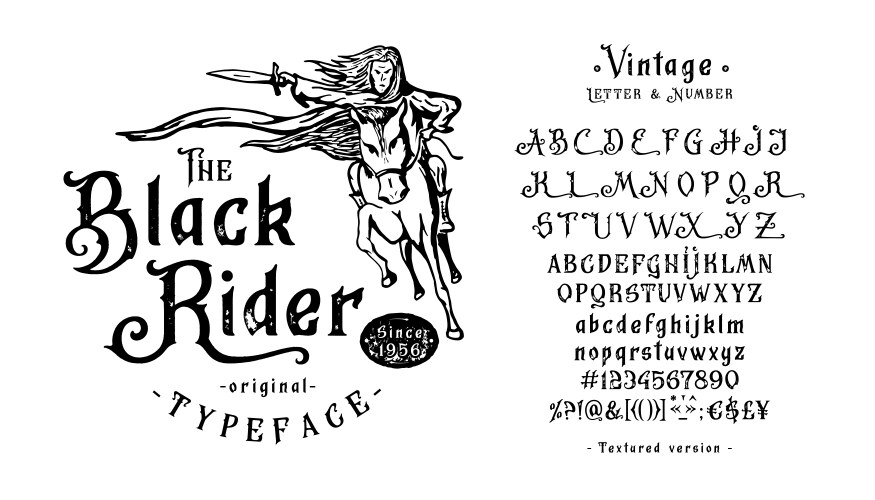 The
Black
Rider
Sincer
1956
-original-
-TYPEFACE-
Vintage
Letter & Number
ABCDEFGHIJ
KLMNOPQR
STUVWXYZ
ABCDEFGHIJKLMN
OPQRSTUVWXYZ
abcdefghijklm
nopqrstuvwxyz
#1234567890
%?!@&[{()}]*"'^«-_»:;€$£¥
- Textured version -